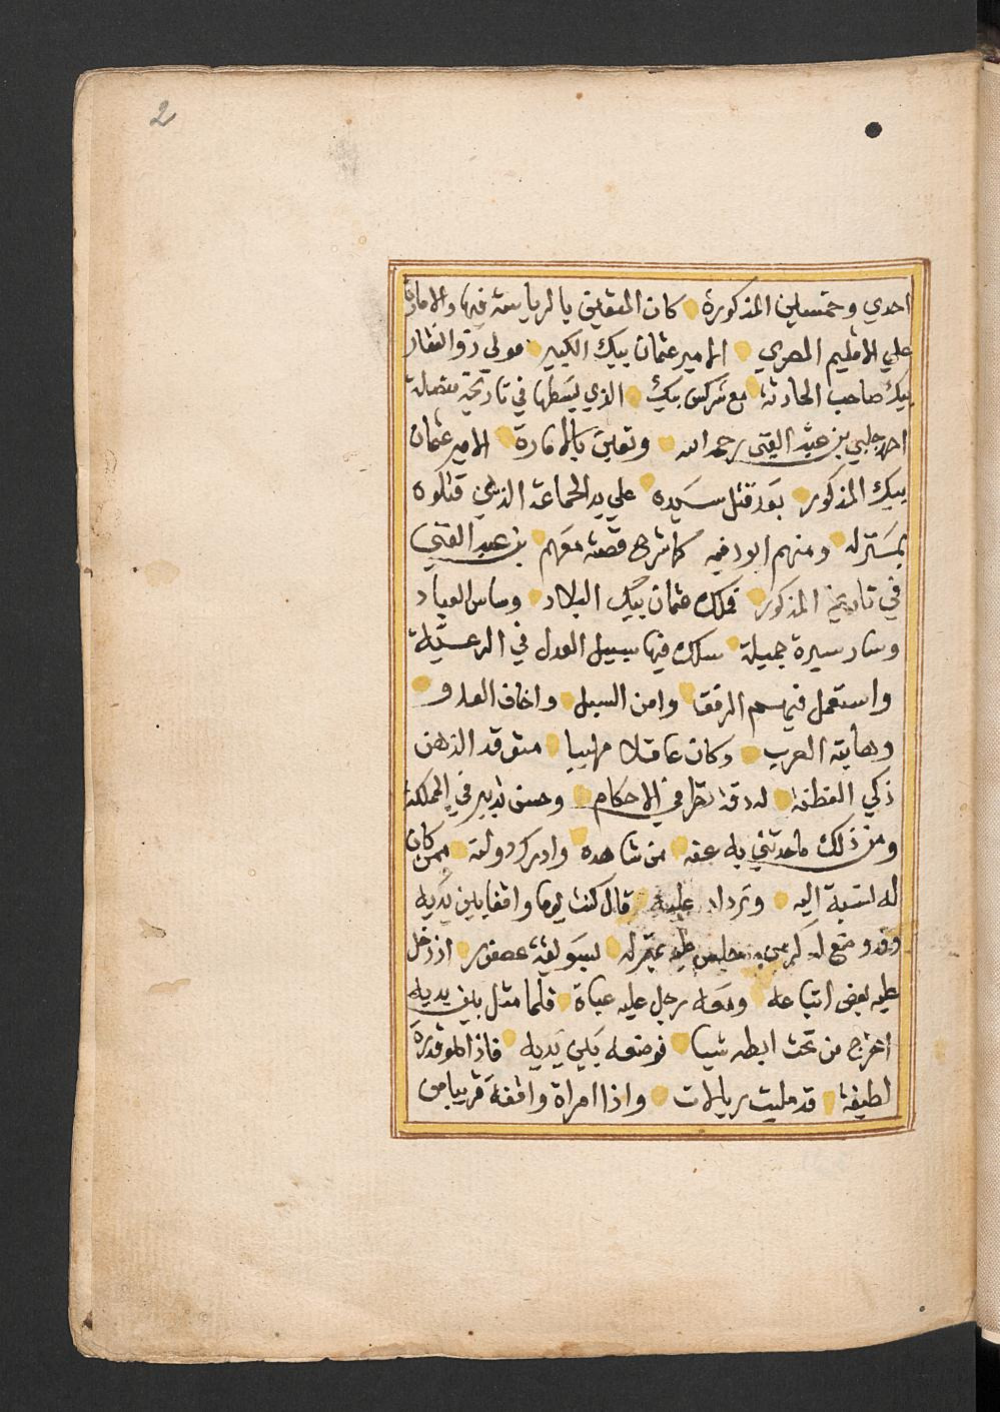 2
احدي وخمسين المذكورة كان المتعين بالرياسة فيها والامارة
علي الاقليم المصري الامير عثمان بيك الكبير مولي ذو الفقار
بيك صاحب الحادثة مع شركس بيك الذي بسطها في تاريخه مفصلة
احمد جلبي بن عبد الغني رحمه الله وتعين بالامارة الامير عثمان
بيك المذكور بعد قتل سيده علي يد الجماعة الذين قتلوه
بمنزله ومنهم ابو دفيه كما شرح قصته معهم بن عبد الغني
في تاريخ المذكور فملك عثمان بيك البلاد وساس العباد
وسار سيرة جميلة سلك فيها سبيل العدل في الرعية
واستعمل فيهم الرفق وامن السبل واخاف العدو
وهابته العرب وكان عاقلا مهيبا متوقد الذهن
ذكي الفطنة له دقة نظر في الاحكام وحسن تدبير في المملكة
ومن ذلك ما حدثني به عنه من شاهده وادرك دولته ممن كان
له نسبة اليه وترداد عليه قال كنت يوما واقفا بين يديه
وقد وضع له كرسي يجلس عليه بمنزله بسويقة عصفور اذ دخل
عليه بعض اتباعه ومعه رجل عليه عباة فلما مثل بين يديه
اخرج من تحت ابطه شيا فوضعه بين يديه فاذا هو قدرة
لطيفة قد مليت ريالات واذا امراة واقفة قريبا من